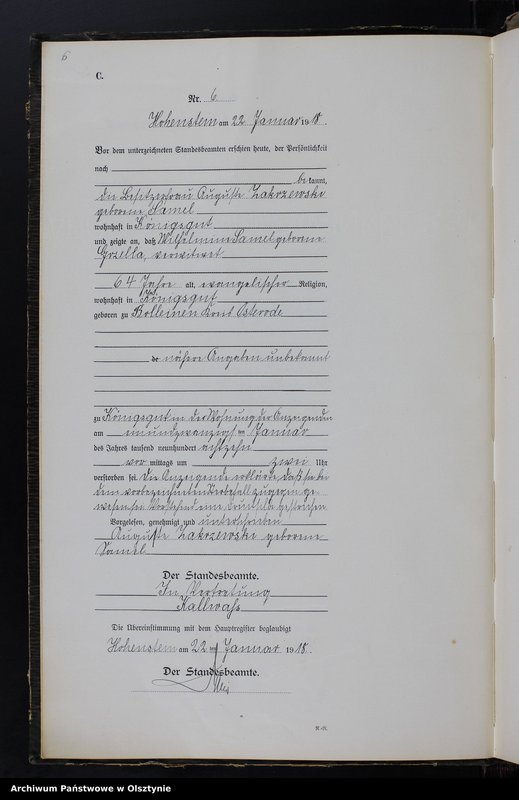 6
C.
Nr. 6
Hohenstein am 22 Januar 1918.
Vor dem unterzeichneten Standesbeamten erschien heute, der Persönlichkeit
nach
bekannt,
die Besitzerfrau Auguste Zakrzewski
geborene Samel
wohnhaft in Königsgut
und zeigte an, daß Wilhelmine Samel geborene
Grzella, verwitwet
64 Jahre alt, evangelischer Religion,
wohnhaft in Königsgut
geboren zu Rolleinen Kreis Osterode
de nähere Angaben unbekannt
zu Königsgut in der Wohnung der Anzeigenden
am einundzwanzigsten Januar
des Jahres tausend neunhundert achtzehn
vor mittags um zwei Uhr
verstorben sei. Die Anzeigende erklärte, daß sie bei
dem vorbezeichneten Sterbefall zugegen ge-
wesen sei. Vorstehend eine Druckzeile gestrichen
Vorgelesen, genehmigt und unterschrieben
Auguste Zakrzewski geborene
Samel
Der Standesbeamte.
In Vertretung
Kallwaß
Die Übereinstimmung mit dem Hauptregister beglaubigt
Hohenstein am 22 Januar 1918.
Der Standesbeamte.
Archiwum Państwowe w Olsztynie